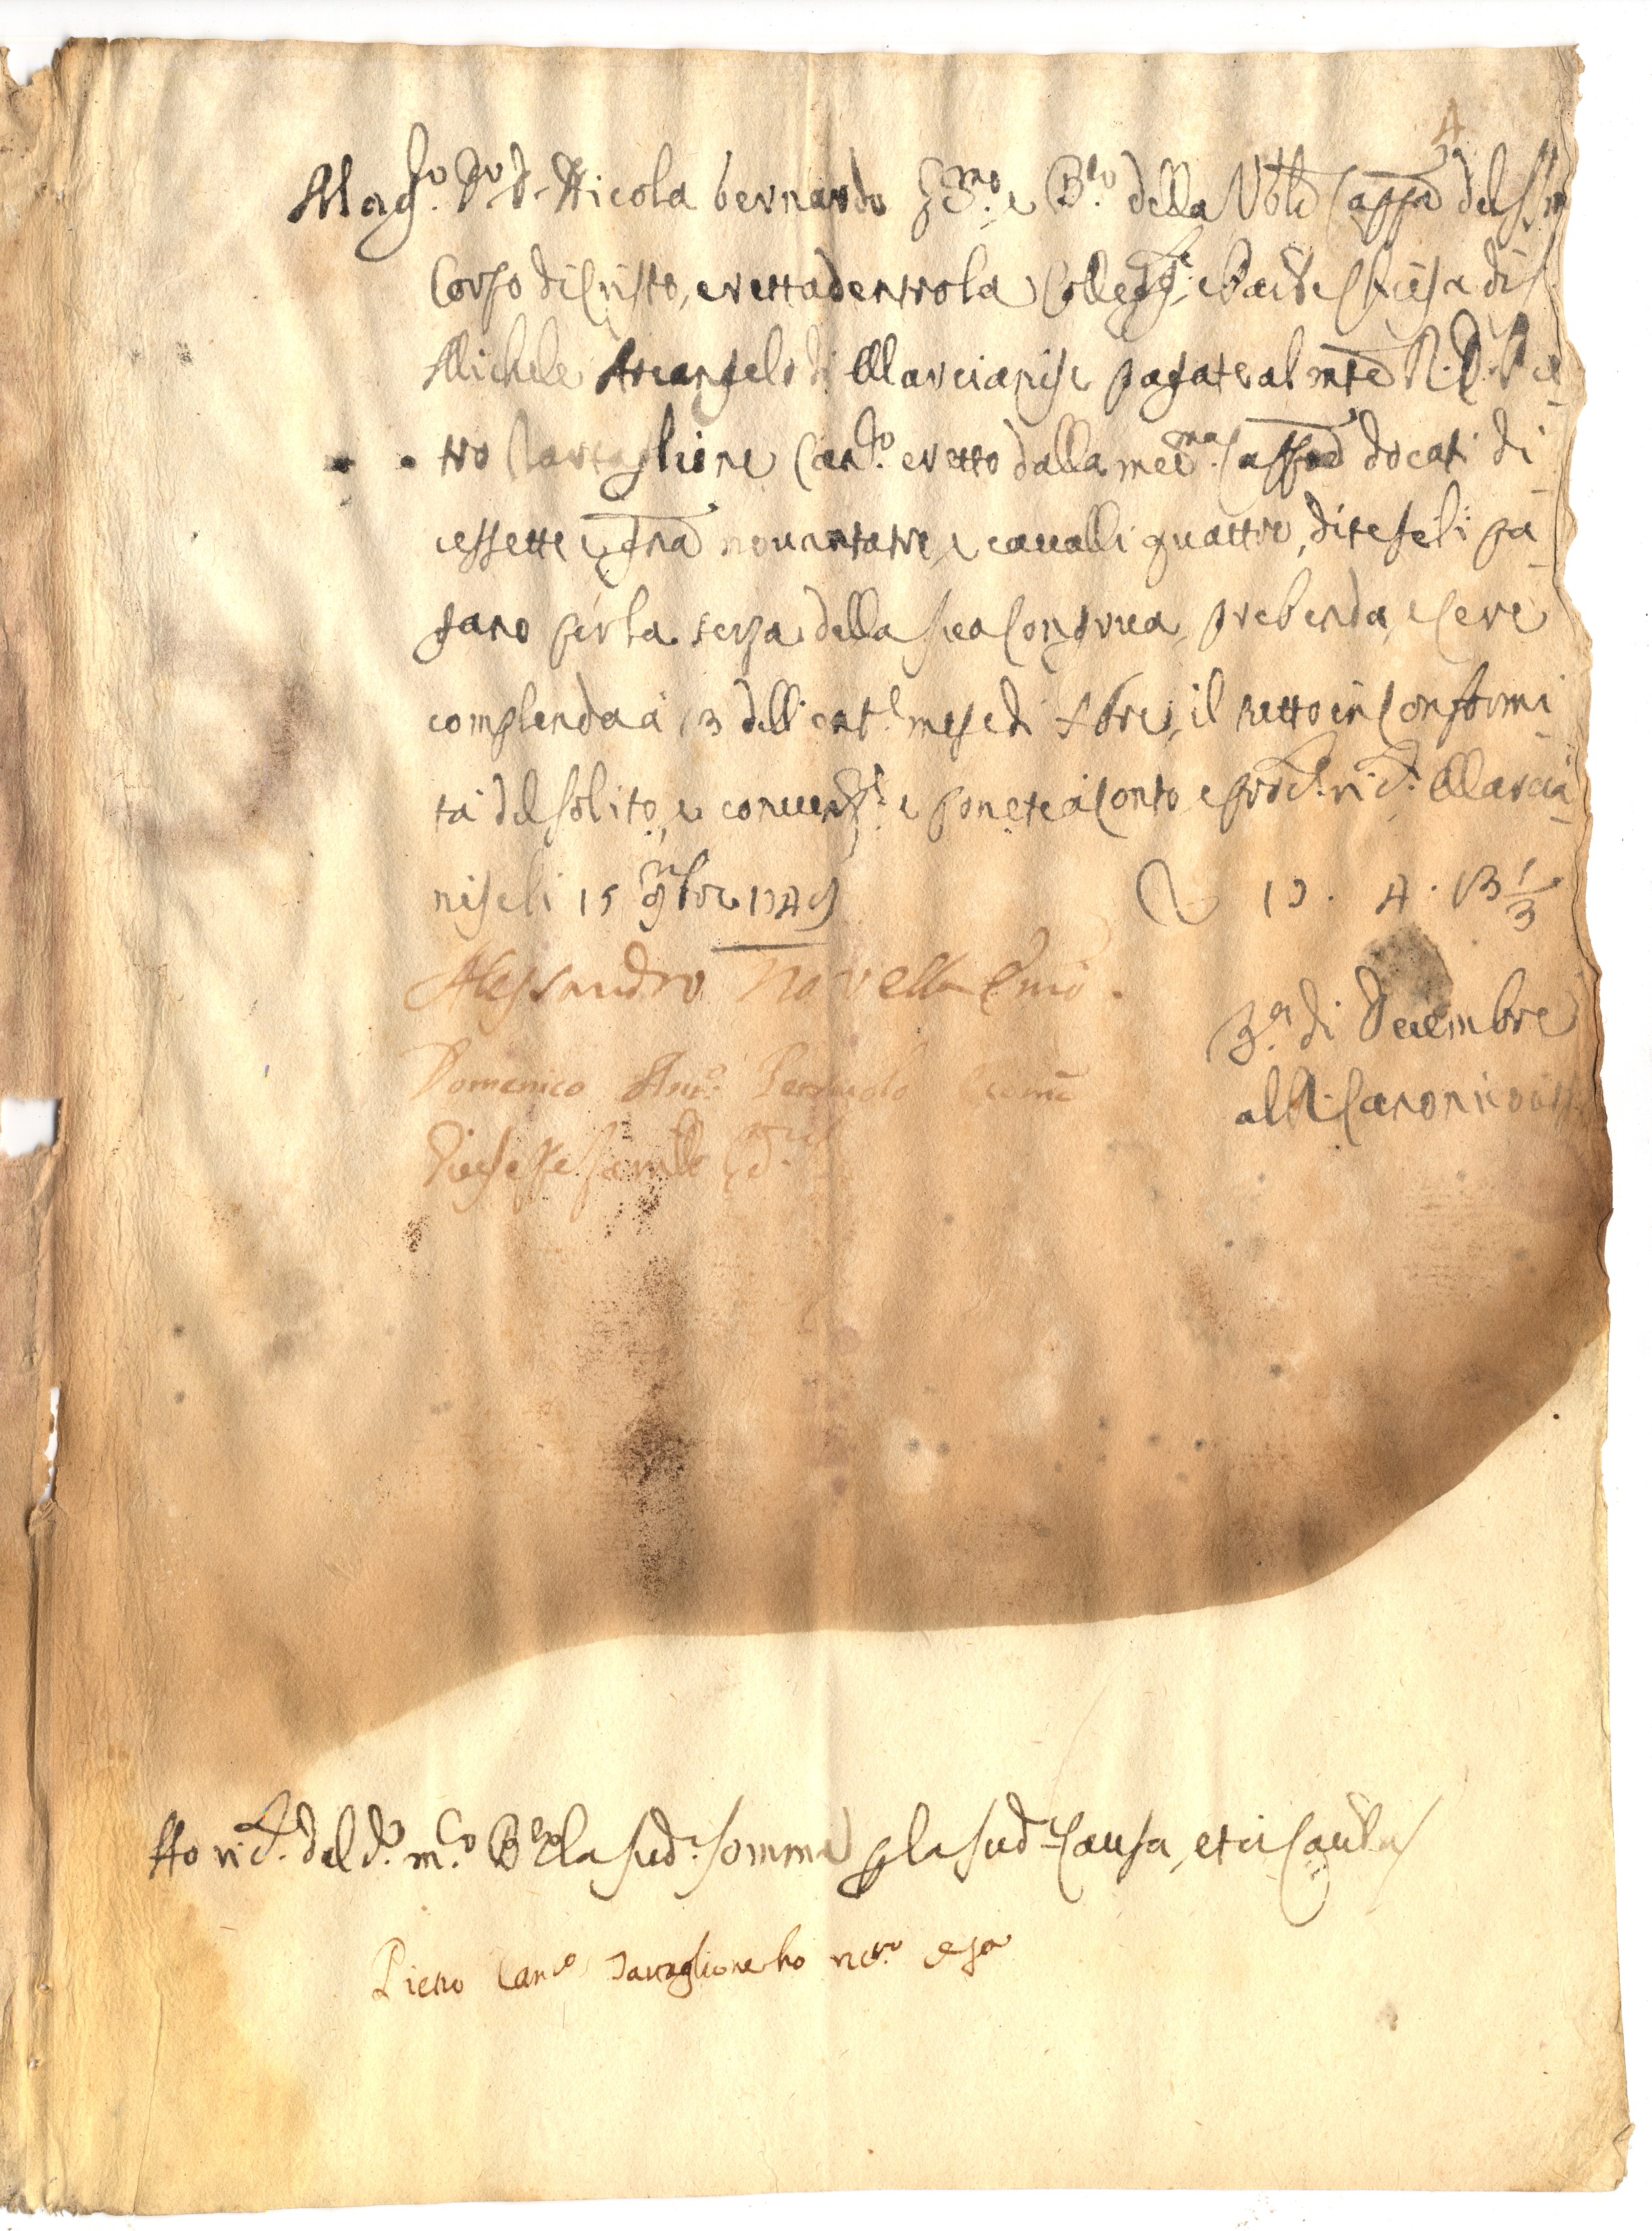 4
Mag.co D.r D. Nicola bernardo Ec.mo e B.ro della Vble Cappa del SSmo
Corpo di Cristo, eretta dentro la Colleg.ta, e Parle Chiesa di S.
Michele Arcangelo di Marcianise pagate al mto R. D. Pie-
tro Tartaglione Can.co eretto dalla med.ma Cappa docati di-
cessette e gna novantatre, e cavalli quattro, dite seli pa-
gano per la terza della sua Congrua, prebenda, e cere
complenda a 13 dell'ent.e mese di Xbre, il tutto in Conformi-
tà del solito, e convenz.e e ponete a Conto, e prod.e ric.ta Marcia-
nise li 15 9bre 1749
17. 4. 13 1/3
Alessandro Novella Eno.
3.a di Decembre
al R. Canonico
Domenico Ant.o Econo
Giuseppe
Ho ric.to dal d.o m.co B.ro la sud.a somma p la sud.a Causa, et in Cautla
Pietro Can.co Tartaglione ho ric.to ut sa